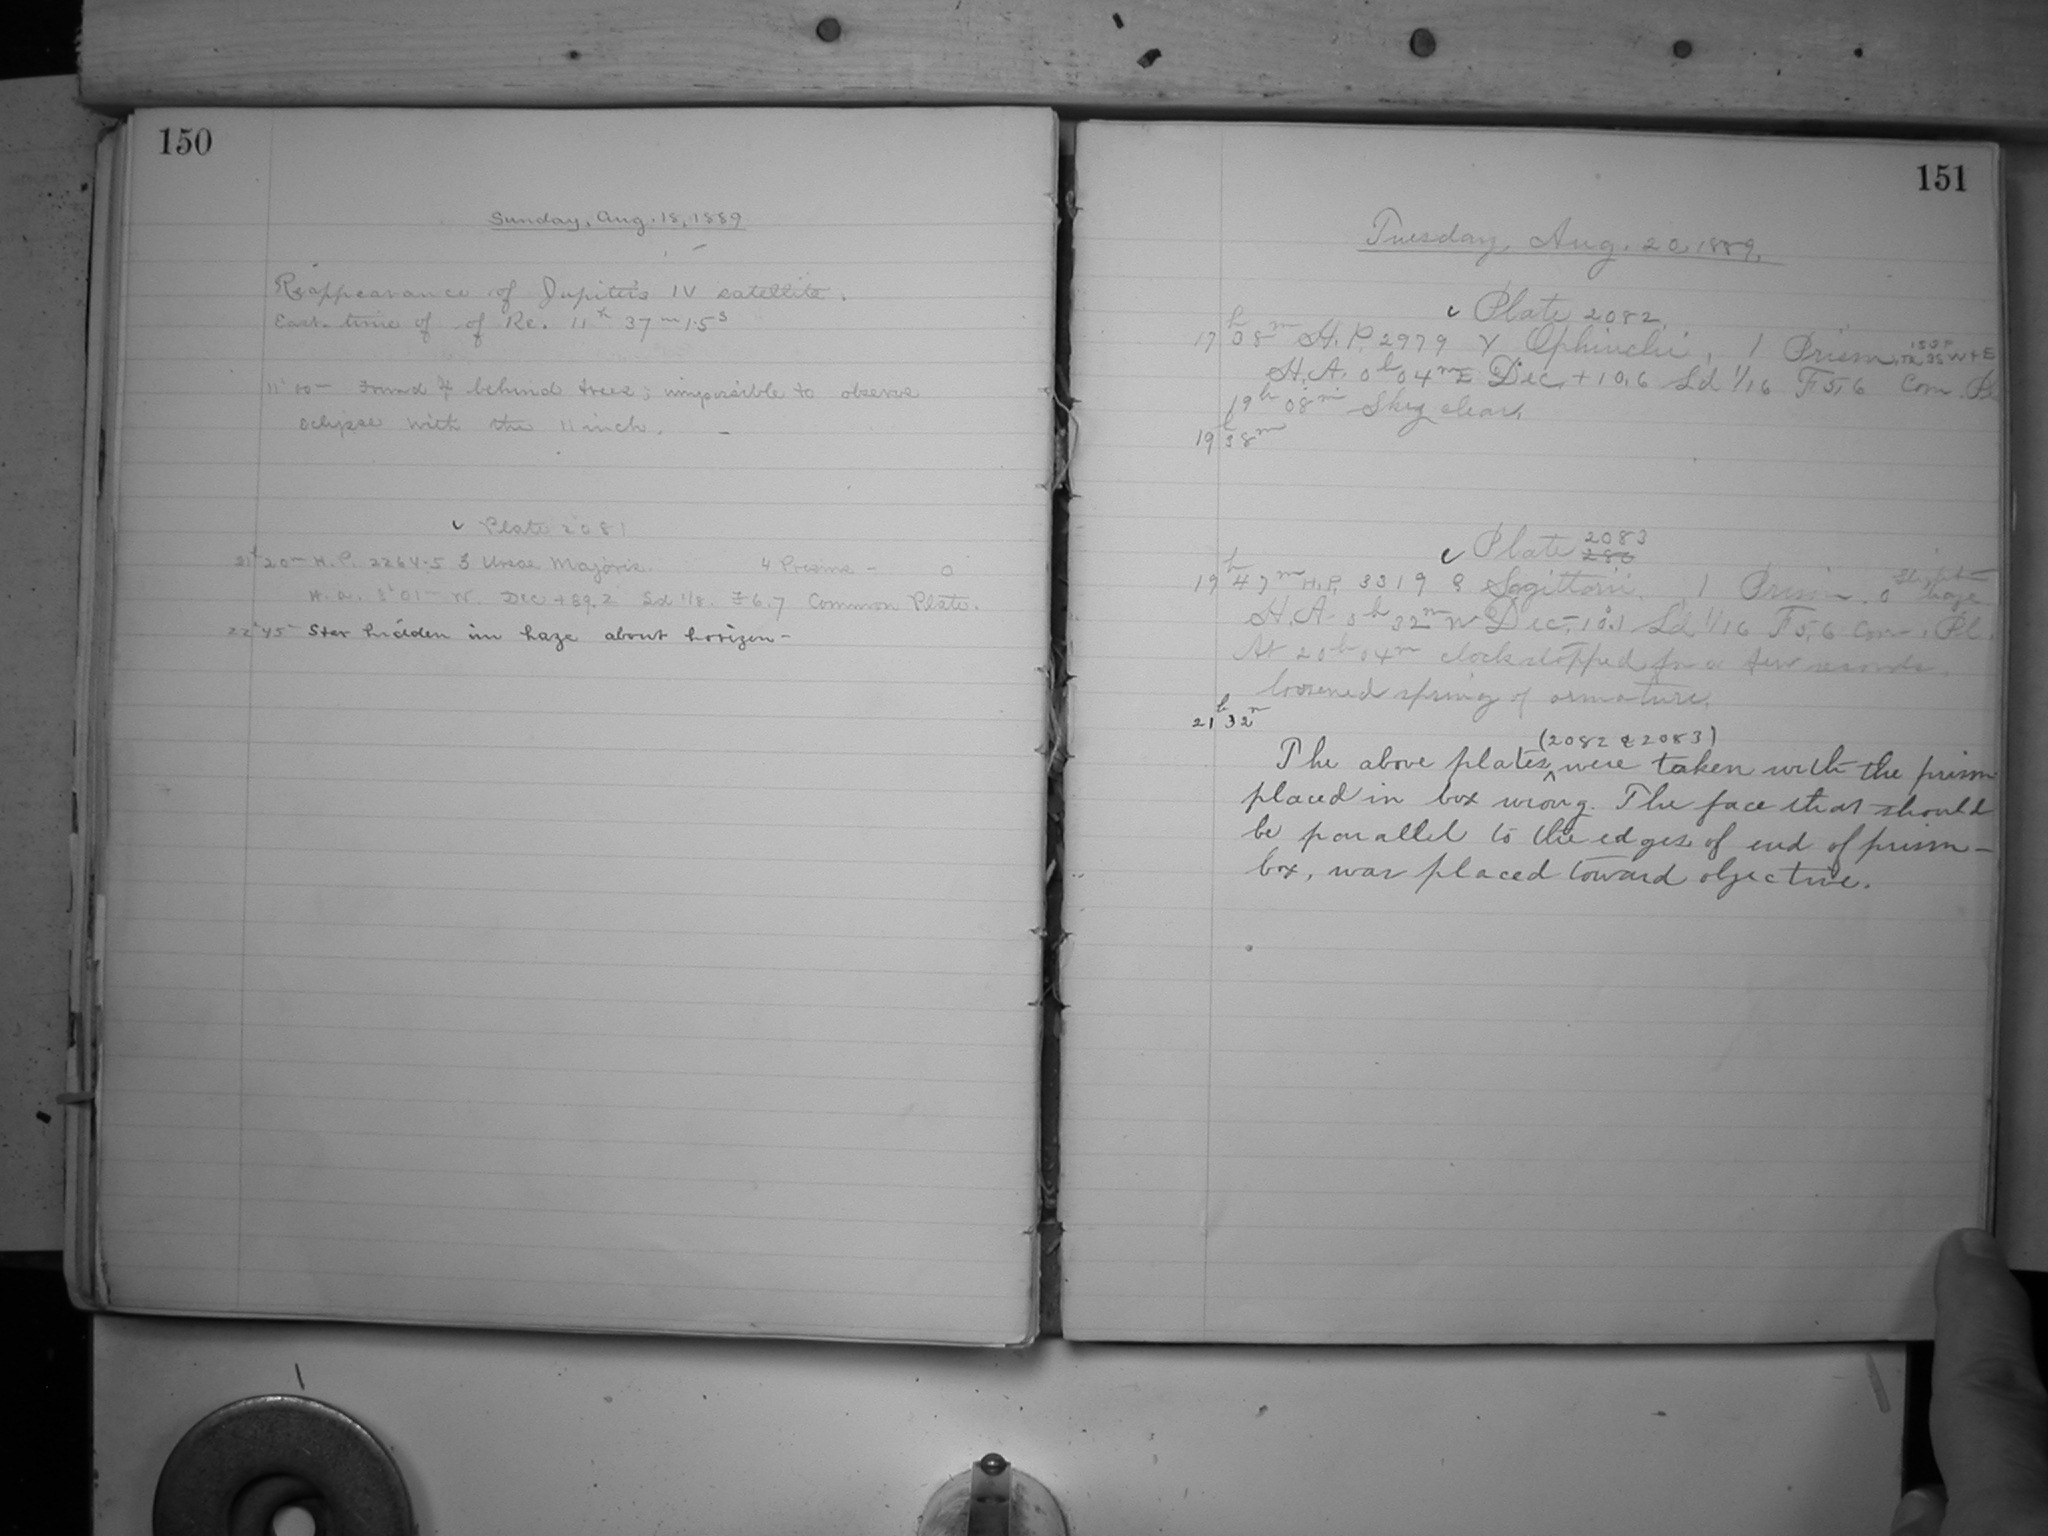 150
Sunday, Aug. 18, 1889
Reappearance of Jupiter's IV satellite.
East. time of of Re. 11h 37m 15s
11h 00m Found ♃ behind trees; impossible to observe
eclipse with the 11 inch.
✓ Plate 2081
21h 20m H.P. 2264-5 ζ Ursae Majoris. 4 Prisms - 0
H.a. 8h 01m W. Dec +89.2 Sd 1/8. F 6.7 Common Plate.
22h 45m Star hidden in haze about horizon -
151
Tuesday, Aug. 20 1889.
✓ Plate 2082.
17h 08m H.P. 2979 γ Ophiuchi, 1 Prism
H.A. 0h 04m E Dec. +10.6 Sd 1/16 F 5.6 Com. Pl
19h 08m Sky clear.
19h 38m
✓ Plate 2083
286
19h 47m H.P. 3319 Sagittarii. 1 Prism. 0 Slight haze
H.A. 32m W Dec - 10.1 Sd 1/16 F 5.6 Com. Pl.
At 20h 04m clock stopped for a few seconds.
loosened spring of armature.
21h 32m
(2082 & 2083)
The above plates ^ were taken with the prism
placed in box wrong. The face that should
be parallel to the edges of end of prism-
box, was placed toward objective.